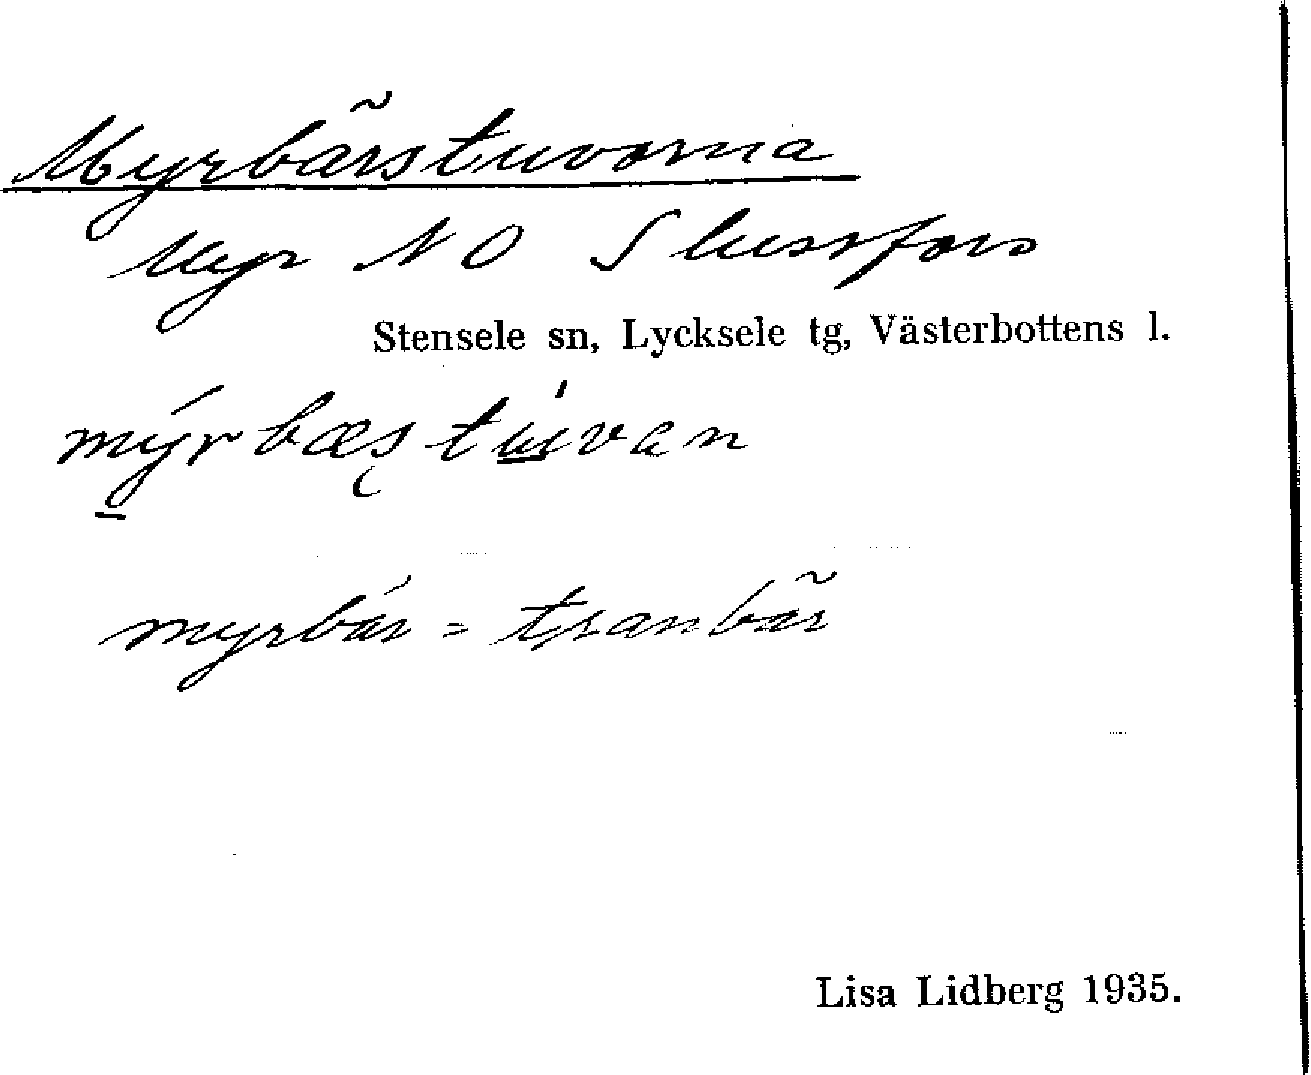 Myrbärstuvorna
Myr NO Slussfors
Stensele sn, Lycksele tg, Västerbottens l.
mýrbæʂtùvan
myrbär = tranbär
Lisa Lidberg 1935.